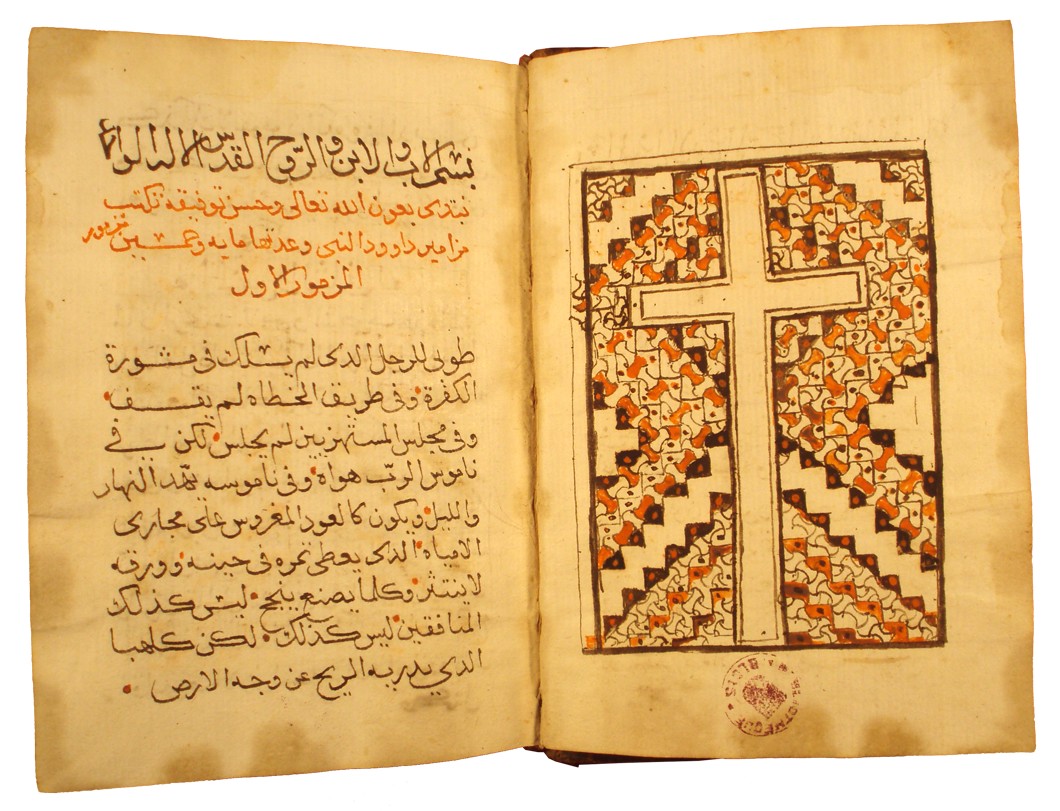 بسم الاب والابن والروح القدس الالـه الواحد
نبتدى بعون الله تعالى وحسن توفيقه نكتب
مزامير داوود النبى وعدتها مايه وخمسين مزمور
المزمور الاول
طوبى للرجل الدى لم يسلك فى مشورة
الكفرة وفى طريق الخطاه لم يقف
وفى مجلس المستهزيين لم يجلس لكن فى
ناموس الرب هواة وفى ناموسه يهدّ النهار
والليل ويكون كالعود المغروس على مجارى
الامياه الدى يعطى ثمره فى حينه وورقه
لا ينتثر وكلما يصنع ينجح ليس كذلك
المنافقين ليس كذلك لكن كالهبا
الدي يدريه الريح عن وجه الارض